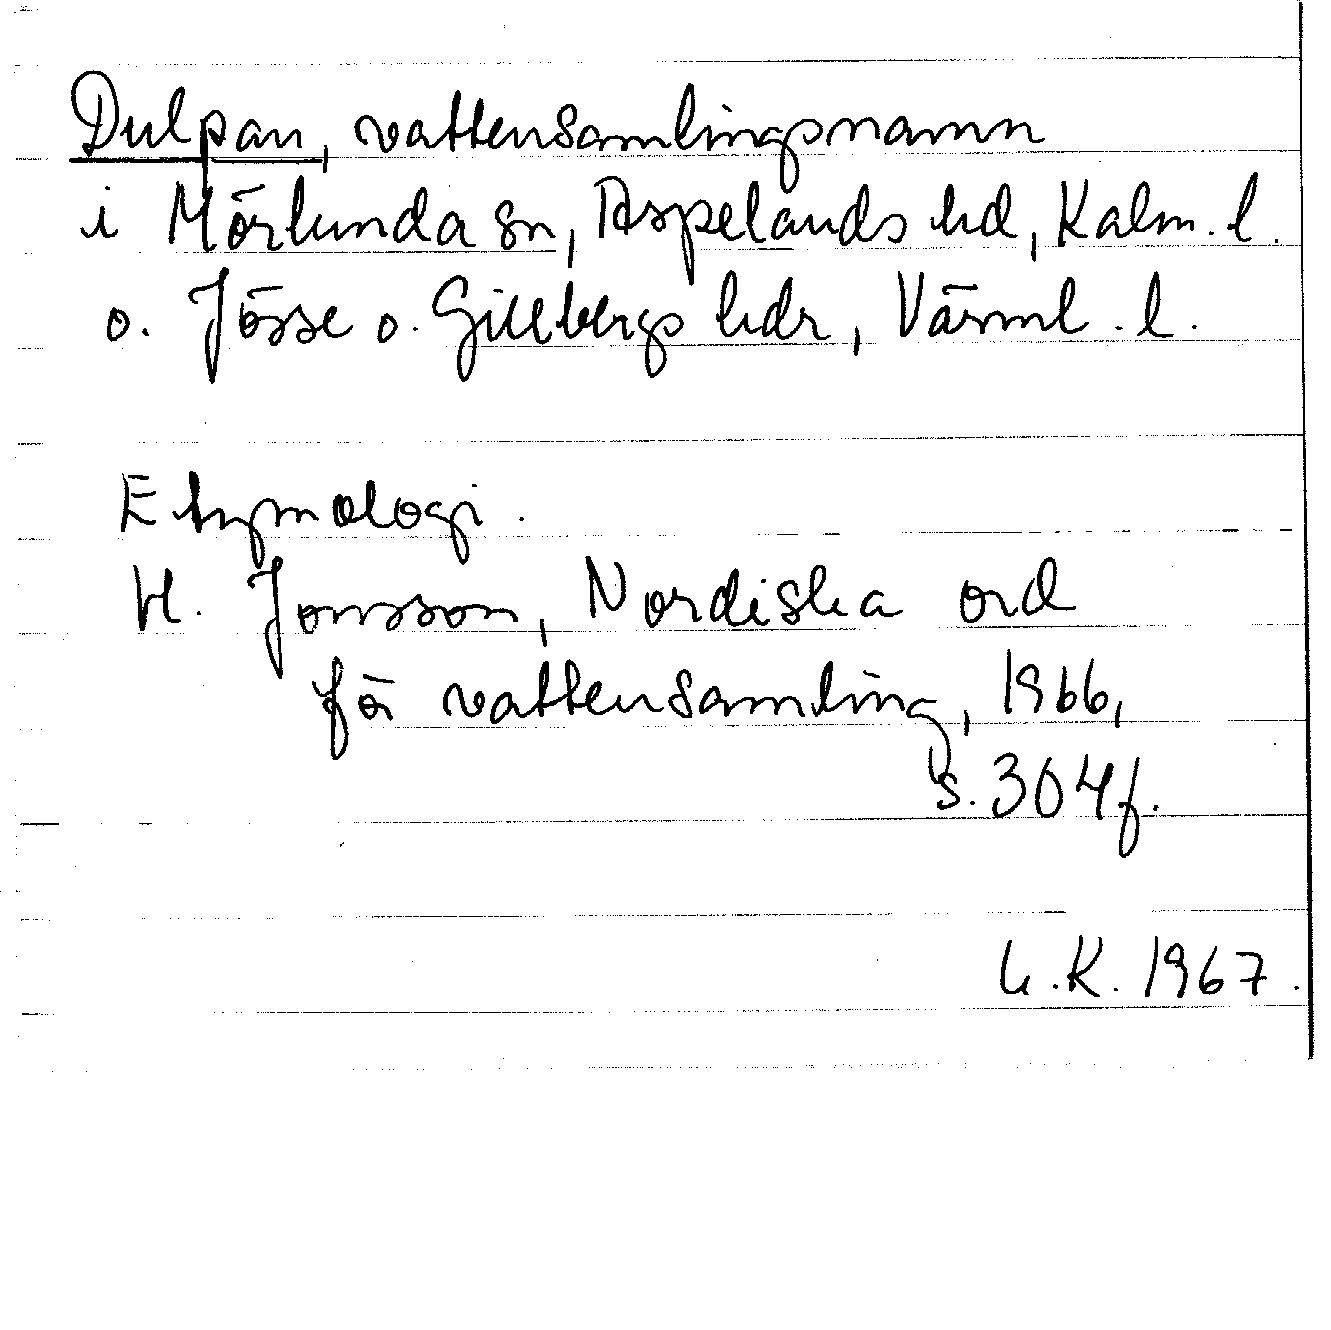 Dulpan, vattensamlingsnamn
i Mörlunda sn, Aspelands hd, Kalm. l.
o. Jösse o. Gillbergs hdr, Värml. l.
Etymologi.
H. Jonsson, Nordiska ord
för vattensamling, 1966,
s. 304f.
L.K. 1967.